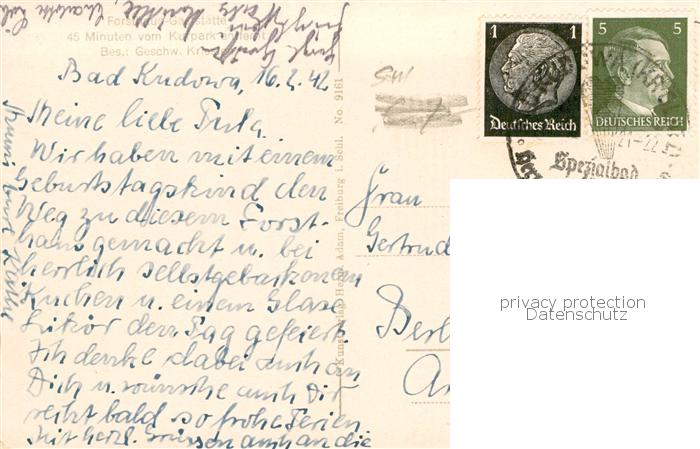 Forsthaus-Gaststätte
45 Minuten vom Kurpark entfernt
Bes.: Geschw.
Bad Kudowa, 16.2.42
Meine liebe Tula
Wir haben mit einem
Geburtstagskind den
Weg zu diesem Forst-
haus gemacht u. bei
herrlich selbstgebackenem
Kuchen u. einem Glase
Likör den Tag gefeiert.
Ich denke dabei auch an
Dich u. wünsche auch Dir
recht bald so frohe Ferien
Mit herzl. Grüssen auch an die
Kunstverlag Adam, Freiburg i. Schl. No. 9161
1 1
Deutsches Reich
5 5
DEUTSCHES REICH
21-22
Spezialbad
Frau
Gertrud
Berl
privacy protection
Datenschutz